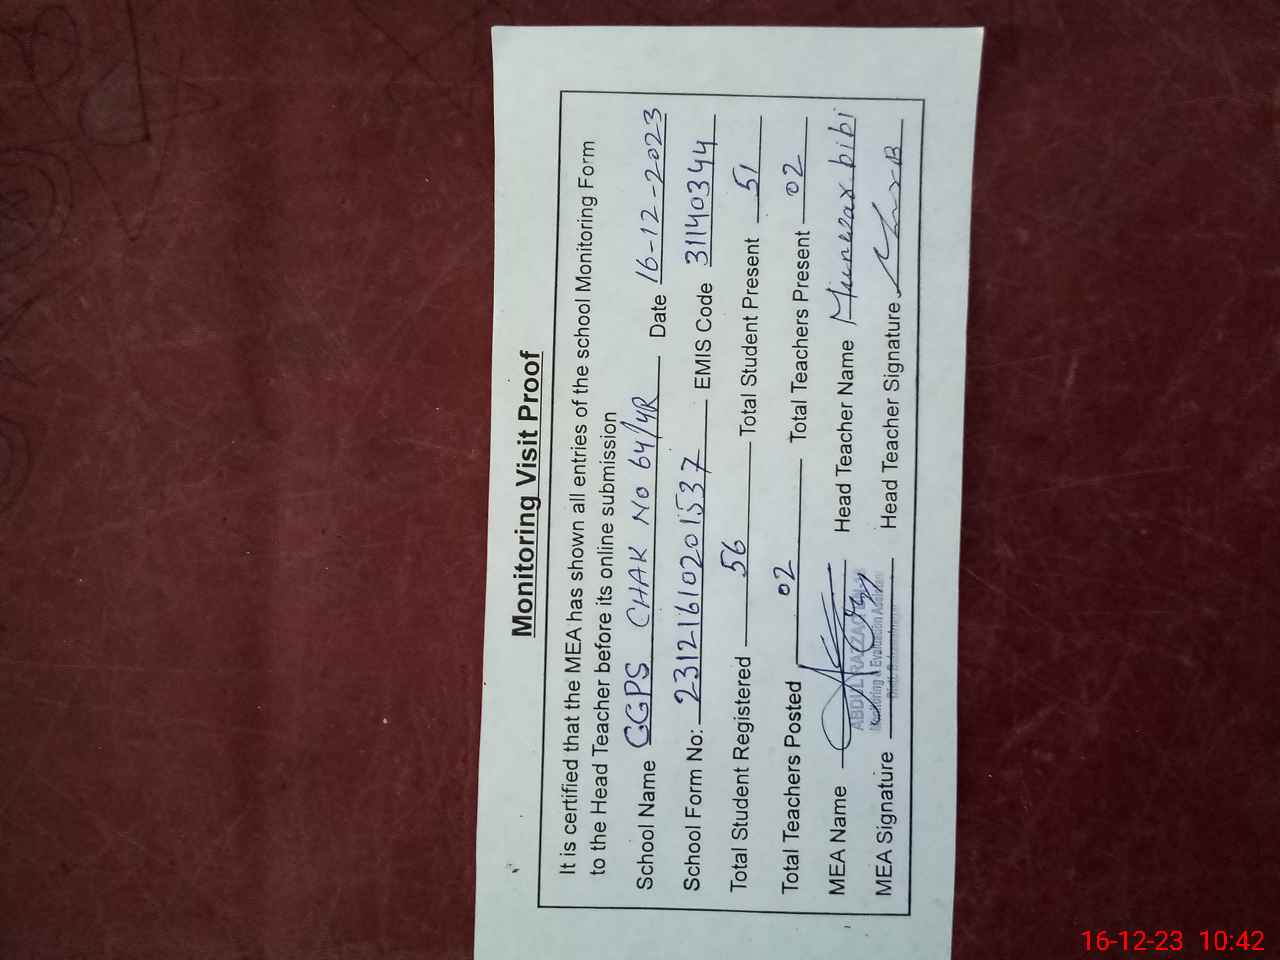 Monitoring Visit Proof
It is certified that the MEA has shown all entries of the school Monitoring Form
to the Head Teacher before its online submission
School Name GGPS CHAK NO 64/4R Date 16-12-2023
School Form No: 23121610201537 EMIS Code 31140344
Total Student Registered 56 Total Student Present 51
Total Teachers Posted 02 Total Teachers Present 02
MEA Name Head Teacher Name bibi
ABDUL RAZZAQ
Monitoring & Evaluation Assistant
MEA Signature Head Teacher Signature
16-12-23 10:42